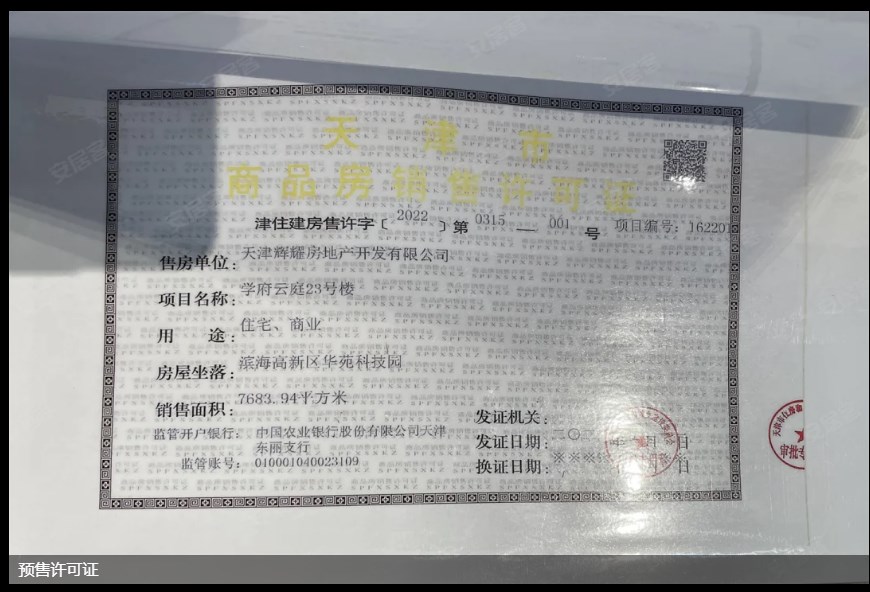 天津市
商品房销售许可证
津住建房售许字〔2022〕第0315—001号 项目编号：16220
售房单位：天津辉耀房地产开发有限公司
项目名称：学府云庭23号楼
用途：住宅、商业
房屋坐落：滨海高新区华苑科技园
销售面积：7683.94平方米
监管开户银行：中国农业银行股份有限公司天津
东丽支行
监管账号：010001040023109
发证机关：
发证日期：二〇 年 月 日
换证日期：※※※ 日
预售许可证
安居客